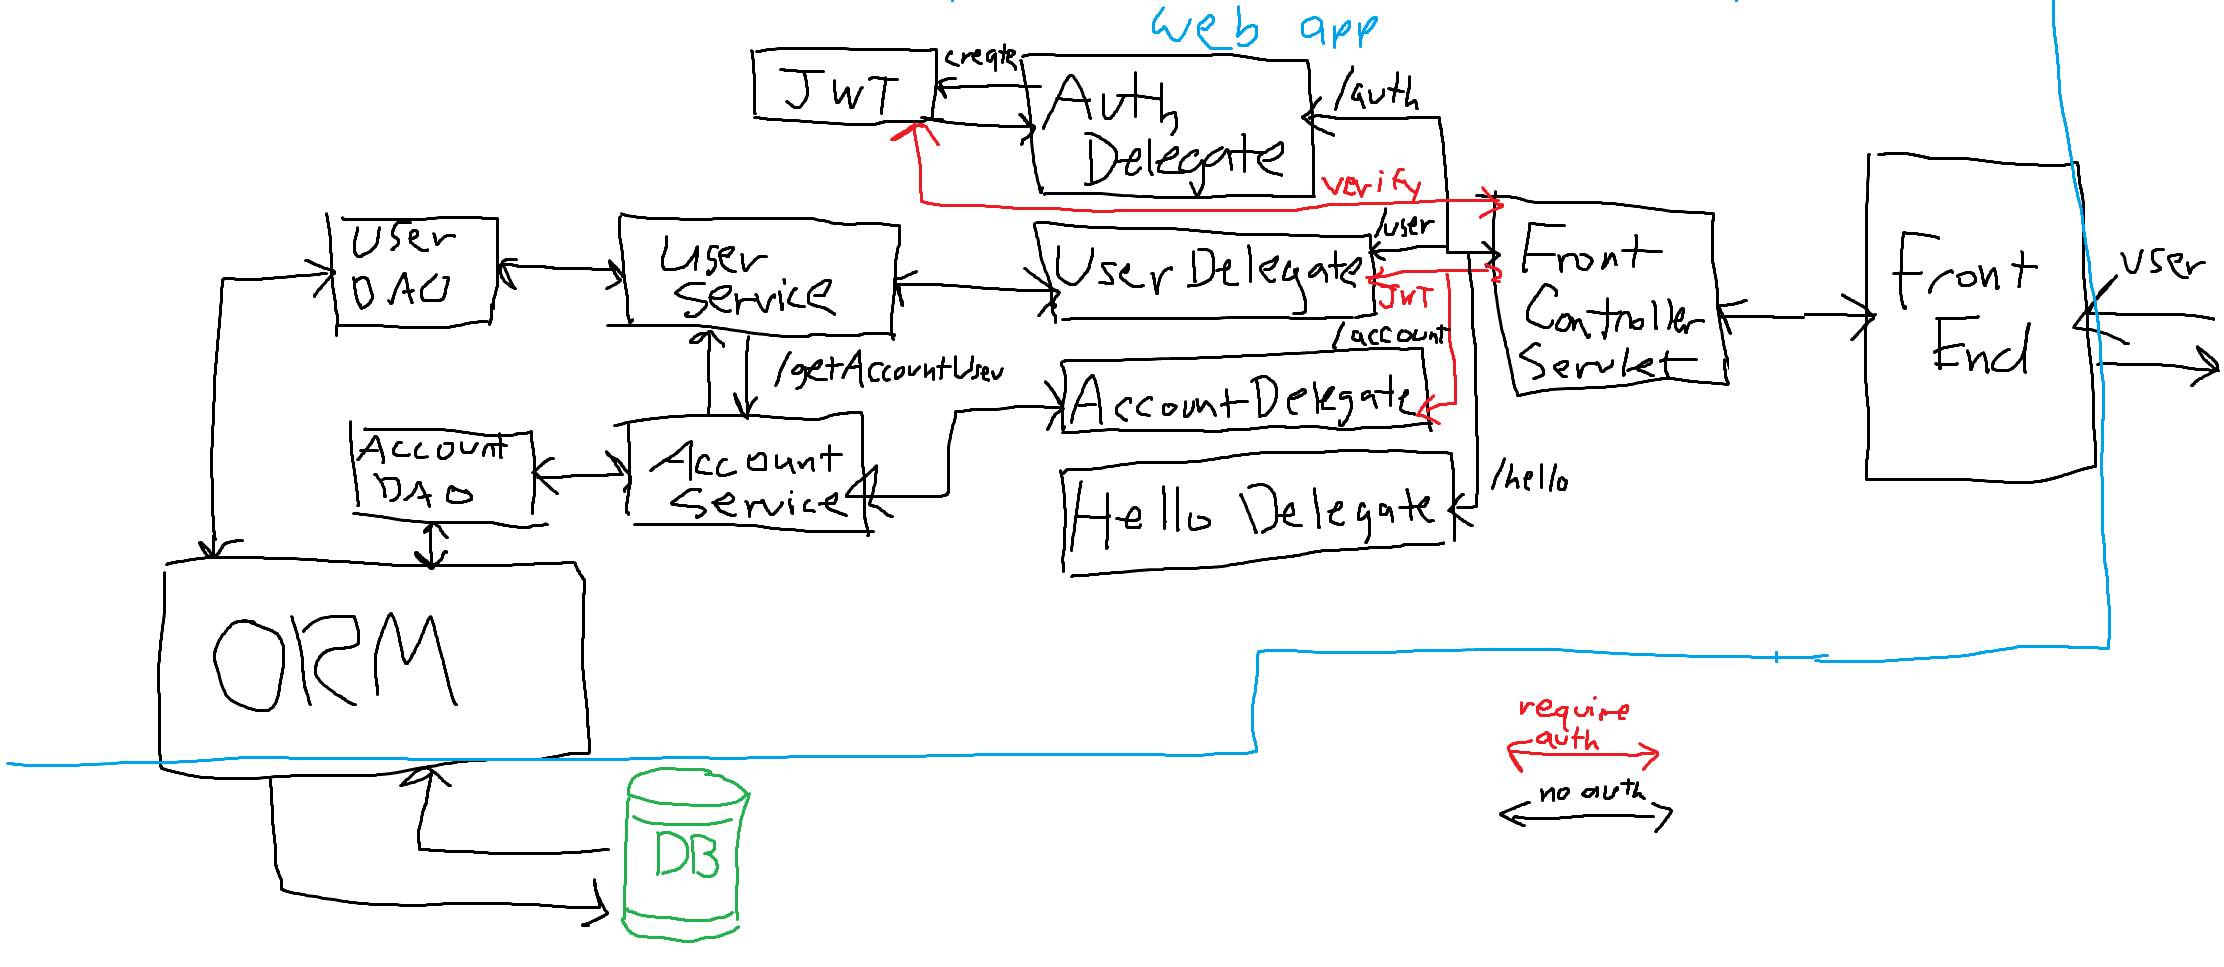 web app
JWT
create
Auth
Delegate
/auth
verify
User
DAO
User
Service
User Delegate
/user
JWT
Front
Controller
Servlet
Front
End
user
/account
/getAccountUser
Account Delegate
Account
DAO
Account
Service
Hello Delegate
/hello
ORM
require
auth
no auth
DB